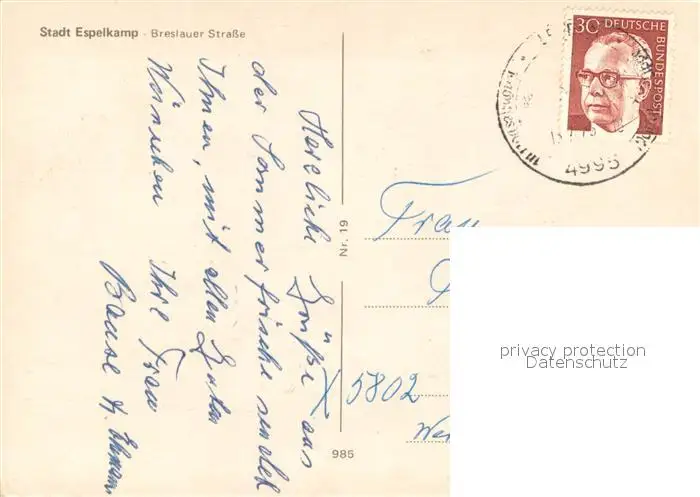 Stadt Espelkamp - Breslauer Straße
Herzliche Grüße aus
der Sommerfrische sendet
Ihnen, mit allen Guten
Wünschen Ihre Frau
30 DEUTSCHE
BUNDESPOST
4995
Nr. 19
985
Frau
X 5802
privacy protection
Datenschutz